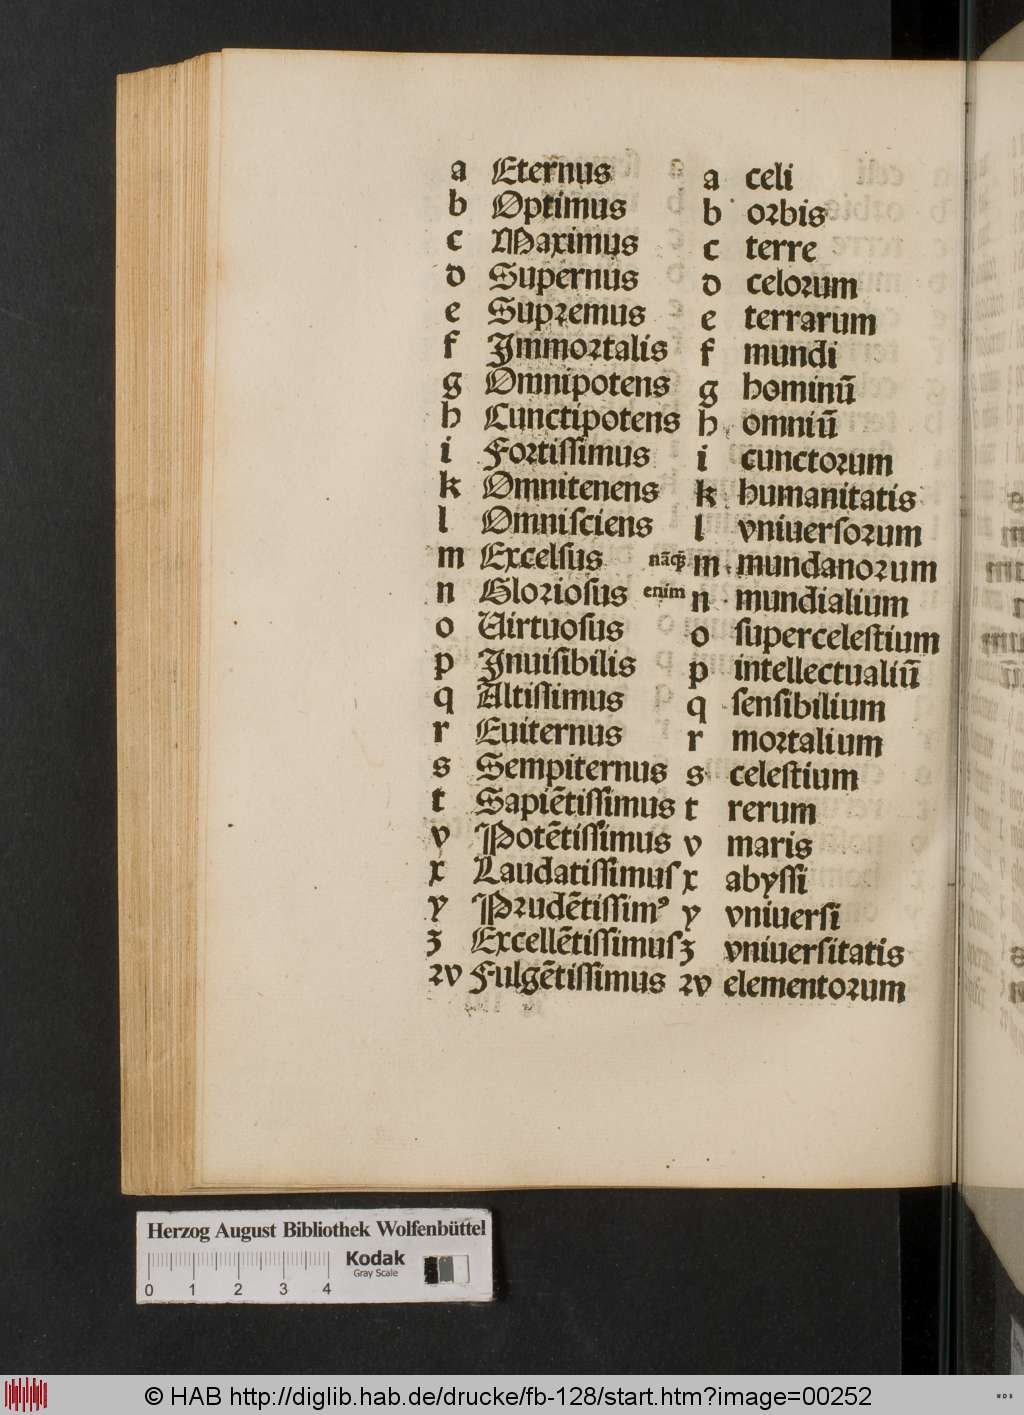 a Eternus a celi
b Optimus b orbis
c Maximus c terre
d Supernus d celorum
e Supremus e terrarum
f Immortalis f mundi
g Omnipotens g hominū
h Cunctipotens h omniū
i Fortiſſimus i cunctorum
k Omnitenens k humanitatis
l Omniſciens l vniuerſorum
m Excelſus nāqꝫ m mundanorum
n Glorioſus enim n mundialium
o Uirtuoſus o ſuperceleſtium
p Inuiſibilis p intellectualiū
q Altiſſimus q ſenſibilium
r Euiternus r mortalium
s Sempiternus s celeſtium
t Sapiētiſſimus t rerum
v Potētiſſimus v maris
x Laudatiſſimuſ x abyſſi
y Prudētiſſimꝰ y vniuerſi
ʒ Excellētiſſimuſ ʒ vniuerſitatis
ꝛv Fulgētiſſimus ꝛv elementorum
Herzog August Bibliothek Wolfenbüttel
Kodak
Gray Scale
0 1 2 3 4
© HAB http://diglib.hab.de/drucke/fb-128/start.htm?image=00252
WDB